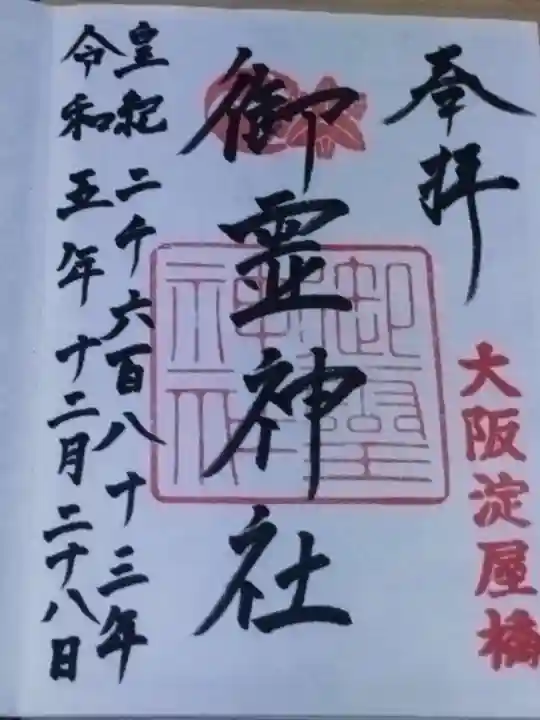 奉拝
大阪淀屋橋
御霊神社
御霊神社
皇紀二千六百八十三年
令和五年十二月二十八日